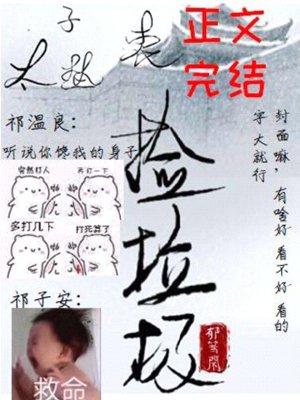 正文
完结
太子
捡垃圾
封面嘛，有啥好看不好看的
字大就行
祁温良：
听说你馋我的身子
突然打人
再打一下
多打几下
打死算了
祁子安：
救命